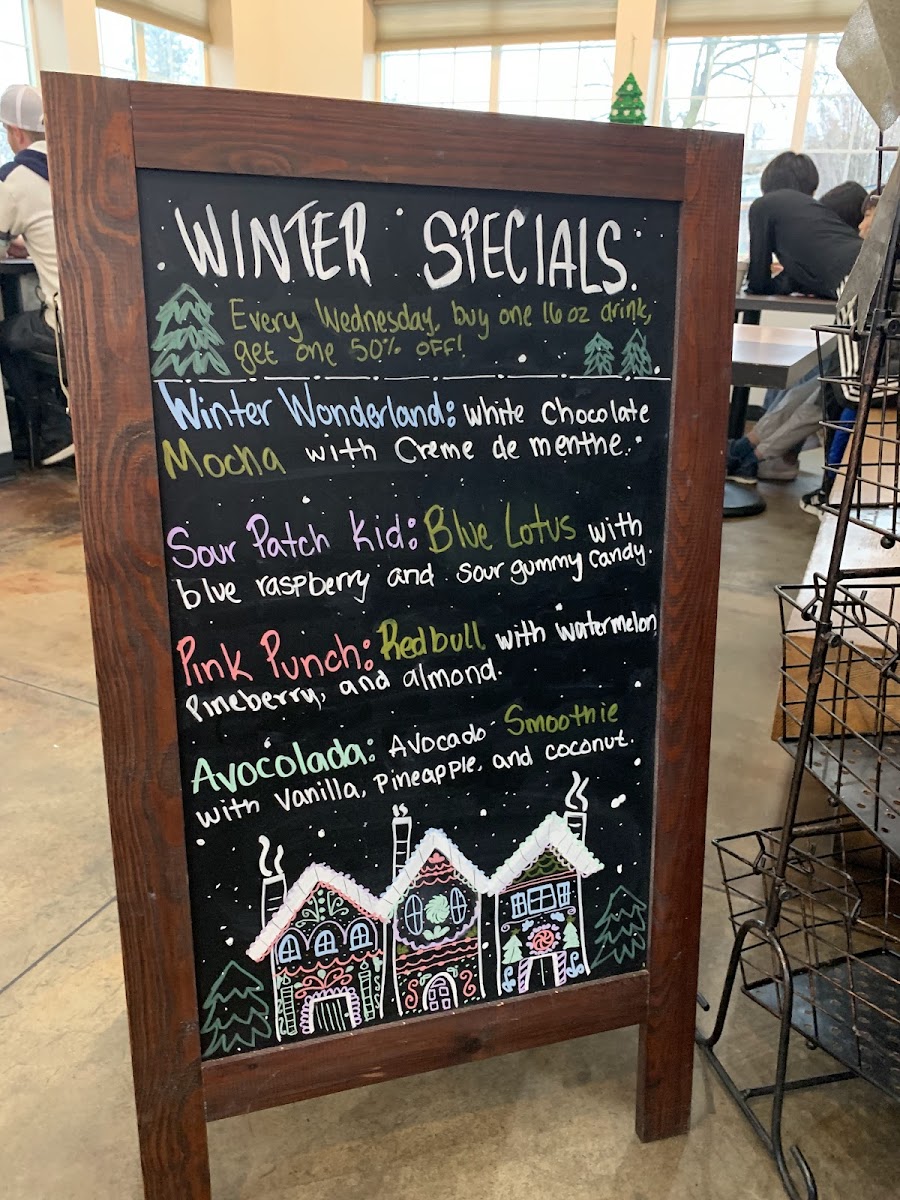 WINTER SPECIALS
Every Wednesday, buy one 16 oz drink,
get one 50% OFF!
Winter Wonderland: white chocolate
Mocha with Creme de menthe.
Sour Patch Kid: Blue Lotus with
blue raspberry and sour gummy candy.
Pink Punch: Redbull with watermelon,
Pineberry, and almond.
Avocolada: Avocado Smoothie
with Vanilla, Pineapple, and coconut.